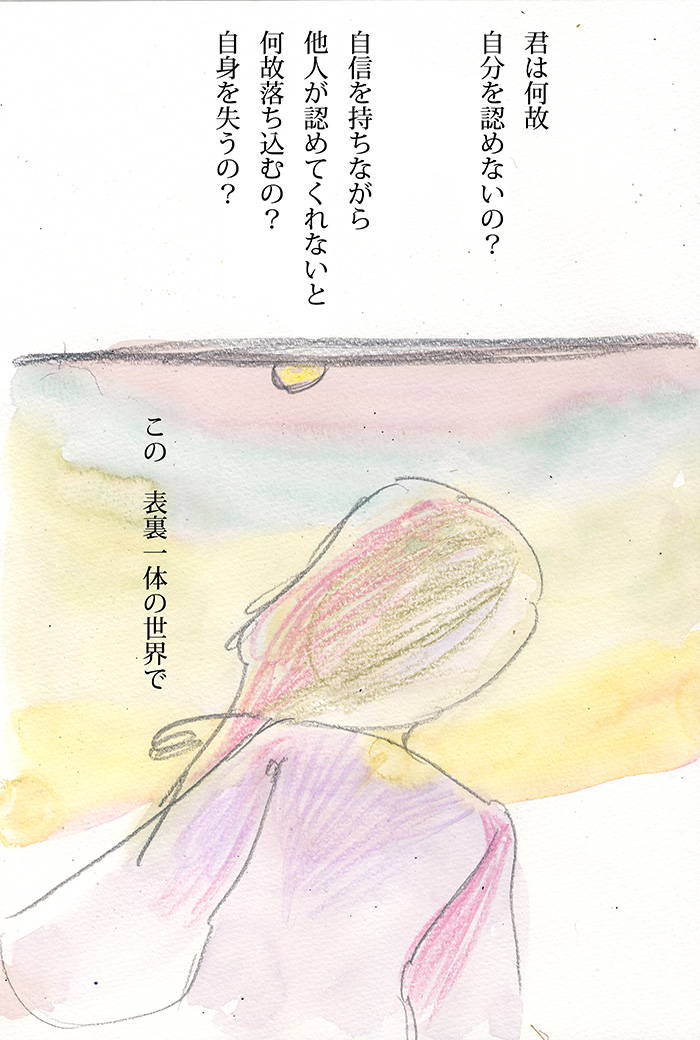 君は何故
自分を認めないの？
自信を持ちながら
他人が認めてくれないと
何故落ち込むの？
自身を失うの？
この　表裏一体の世界で